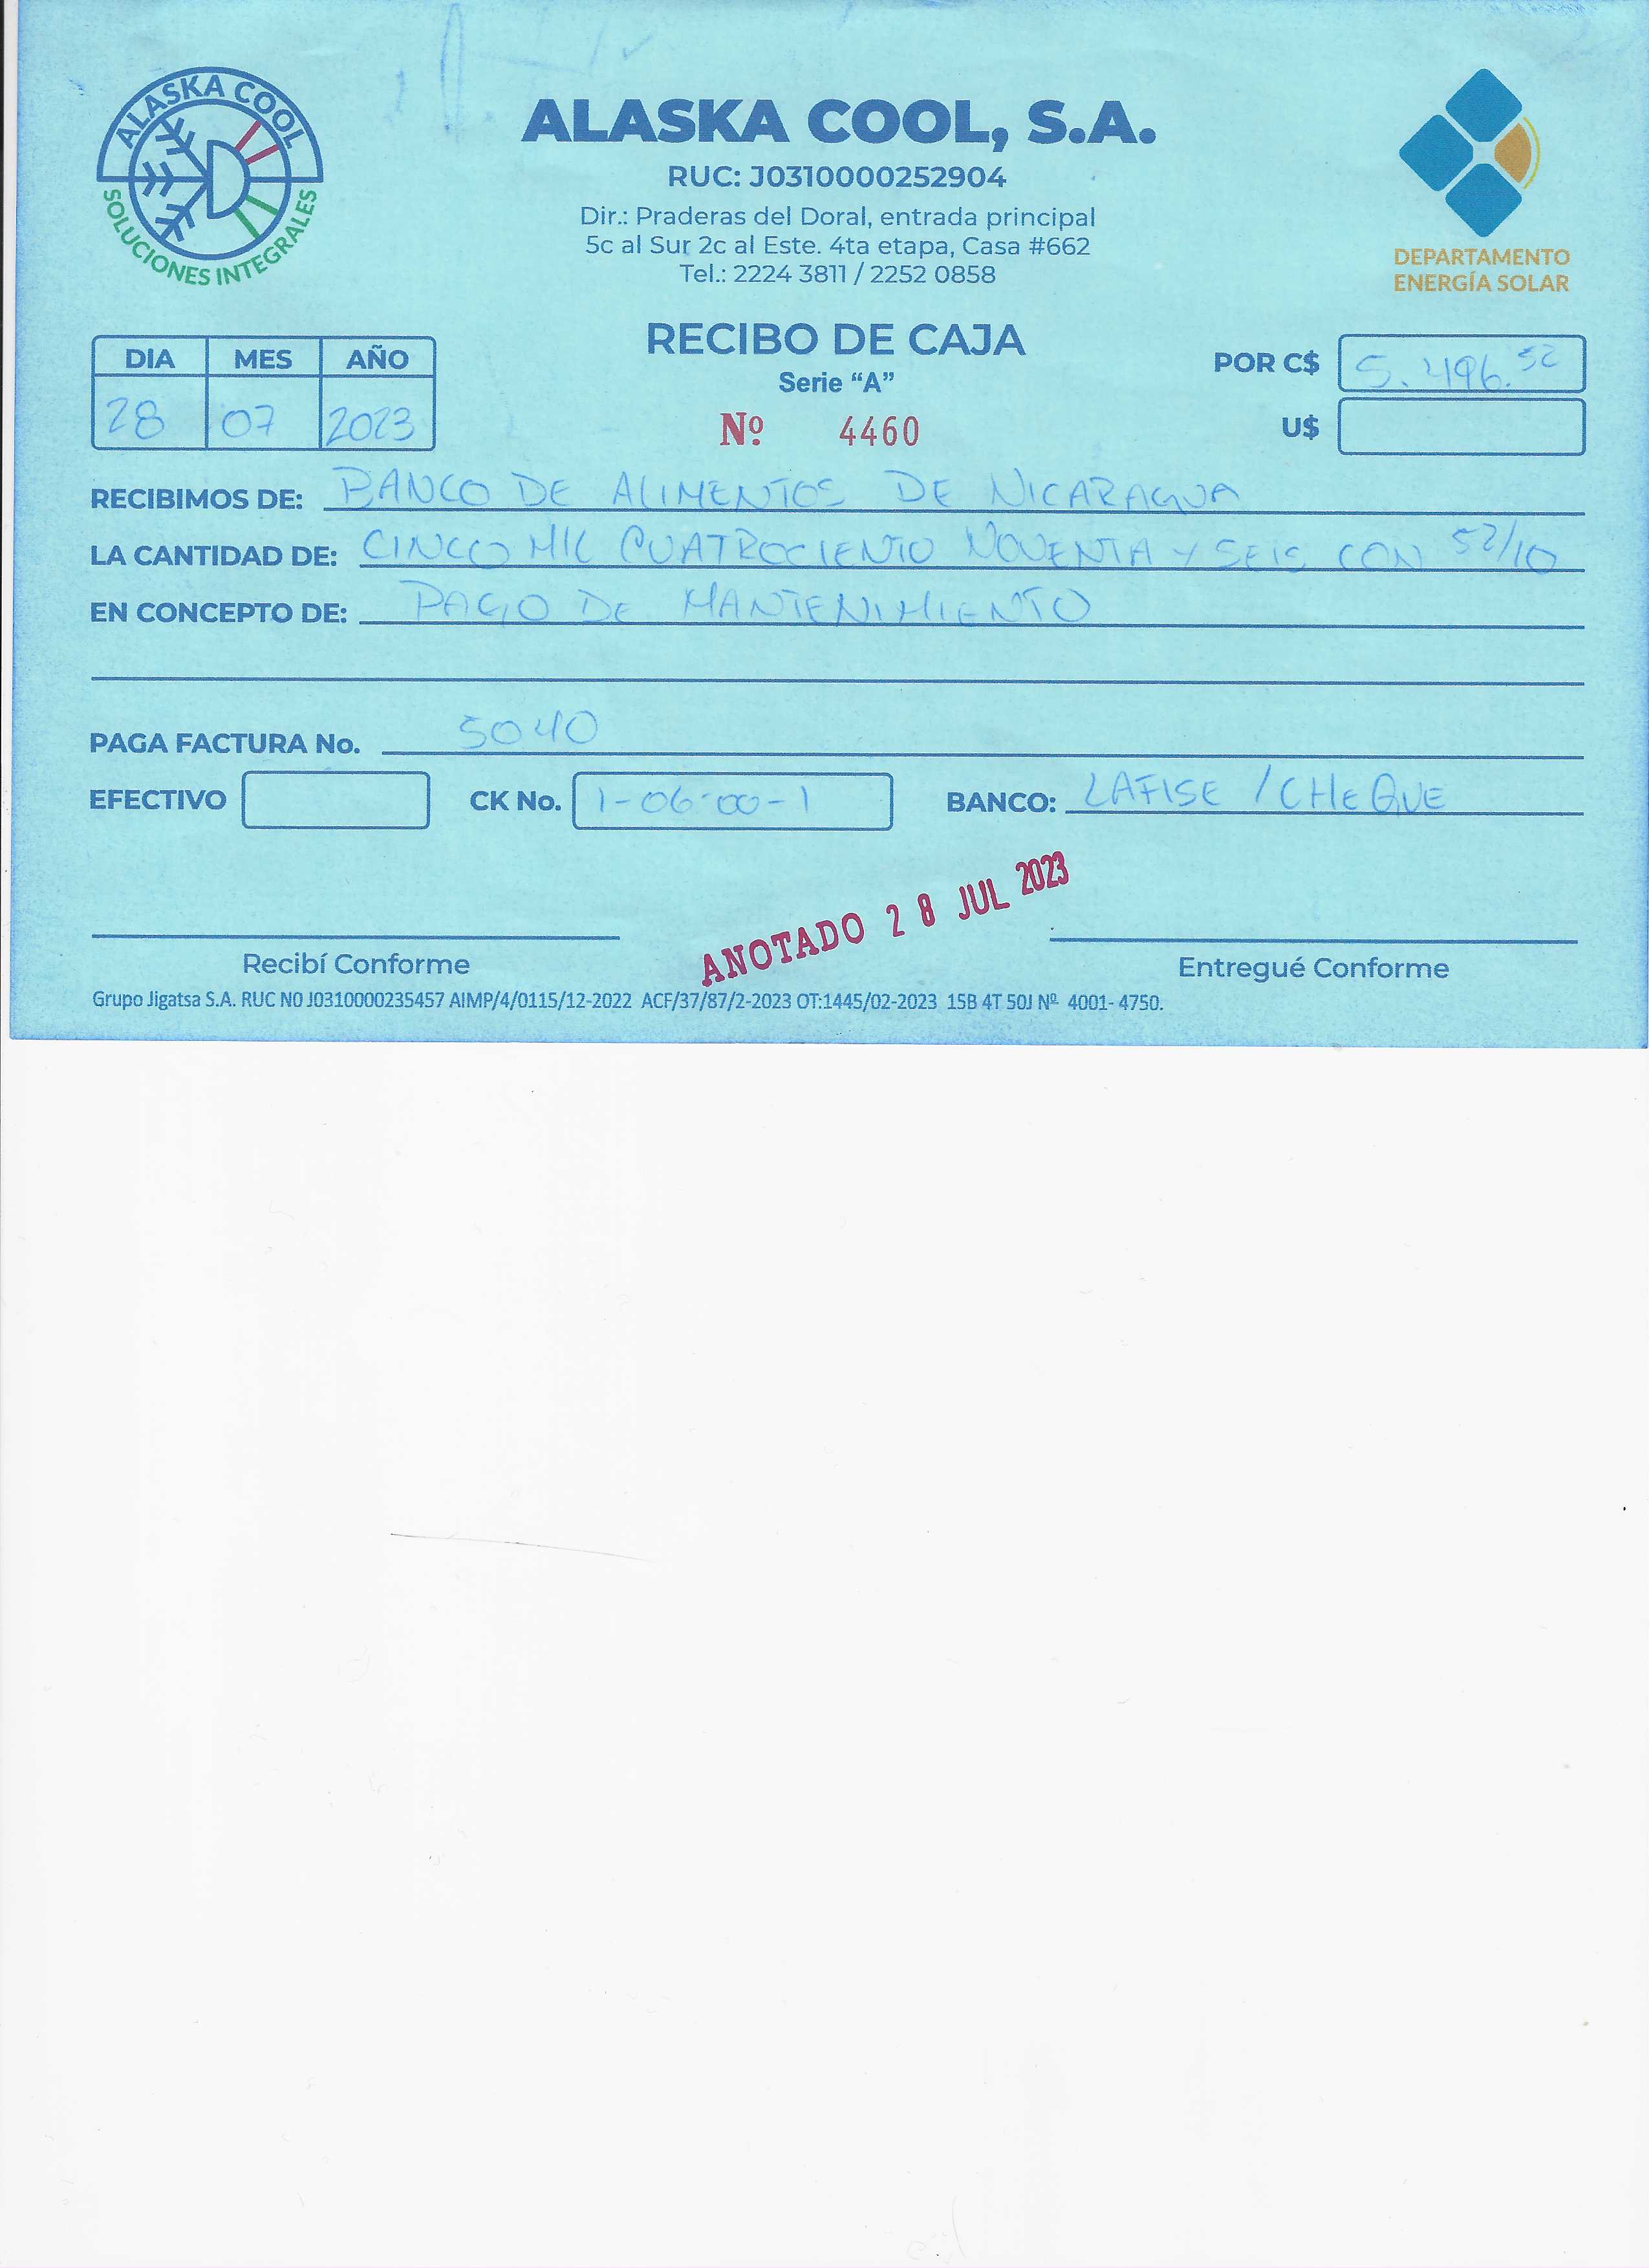 ALASKA COOL
SOLUCIONES INTEGRALES
ALASKA COOL, S.A.
RUC: J0310000252904
Dir.: Praderas del Doral, entrada principal
5c al Sur 2c al Este. 4ta etapa, Casa #662
Tel.: 2224 3811 / 2252 0858
DEPARTAMENTO
ENERGÍA SOLAR
RECIBO DE CAJA
Serie “A”
Nº 4460
DIA MES AÑO
28 07 2023
POR C$ 5.496.52
U$
RECIBIMOS DE: BANCO DE ALIMENTOS DE NICARAGUA
LA CANTIDAD DE: CINCO MIL CUATROCIENTO NOVENTA Y SEIS CON 52/10
EN CONCEPTO DE: PAGO DE MANTENIMIENTO
PAGA FACTURA No. 5040
EFECTIVO CK No. 1-06-00-1 BANCO: LAFISE / CHEQUE
ANOTADO 28 JUL 2023
Recibí Conforme Entregué Conforme
Grupo Jigatsa S.A. RUC N0 J0310000235457 AIMP/4/0115/12-2022 ACF/37/87/2-2023 OT:1445/02-2023 15B 4T 50J Nº 4001- 4750.